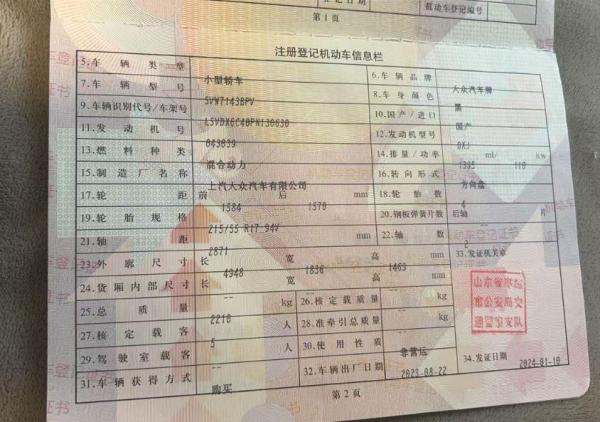 登记日期
机动车登记编号
第 1 页
注册登记机动车信息栏
5.车辆类型 小型轿车 6.车辆品牌 大众汽车牌
7.车辆型号 SVW7143BPV 8.车身颜色 黑
9.车辆识别代号/车架号 10.国产/进口 国产
11.发动机号 043039 12.发动机型号
13.燃料种类 混合动力 14.排量/功率 1395 ml/ 110 kw
15.制造厂名称 上汽大众汽车有限公司 16.转向形式 方向盘
17.轮距 前 1584 后 1570 mm 18.轮胎数 4
19.轮胎规格 215/55 R17 94V 20.钢板弹簧片数 后轴 -- 片
21.轴距 2871 mm 22.轴数 2
23.外廓尺寸 长 4948 宽 1836 高 1469 mm 33.发证机关章
24.货厢内部尺寸 长 -- 宽 -- 高 -- mm
25.总质量 2210 kg 26.核定载质量 -- kg
27.核定载客 5 人 28.准牵引总质量 -- kg
29.驾驶室载客 -- 人 30.使用性质 非营运
31.车辆获得方式 购买 32.车辆出厂日期 2023-08-22 34.发证日期 2024-01-10
第 2 页